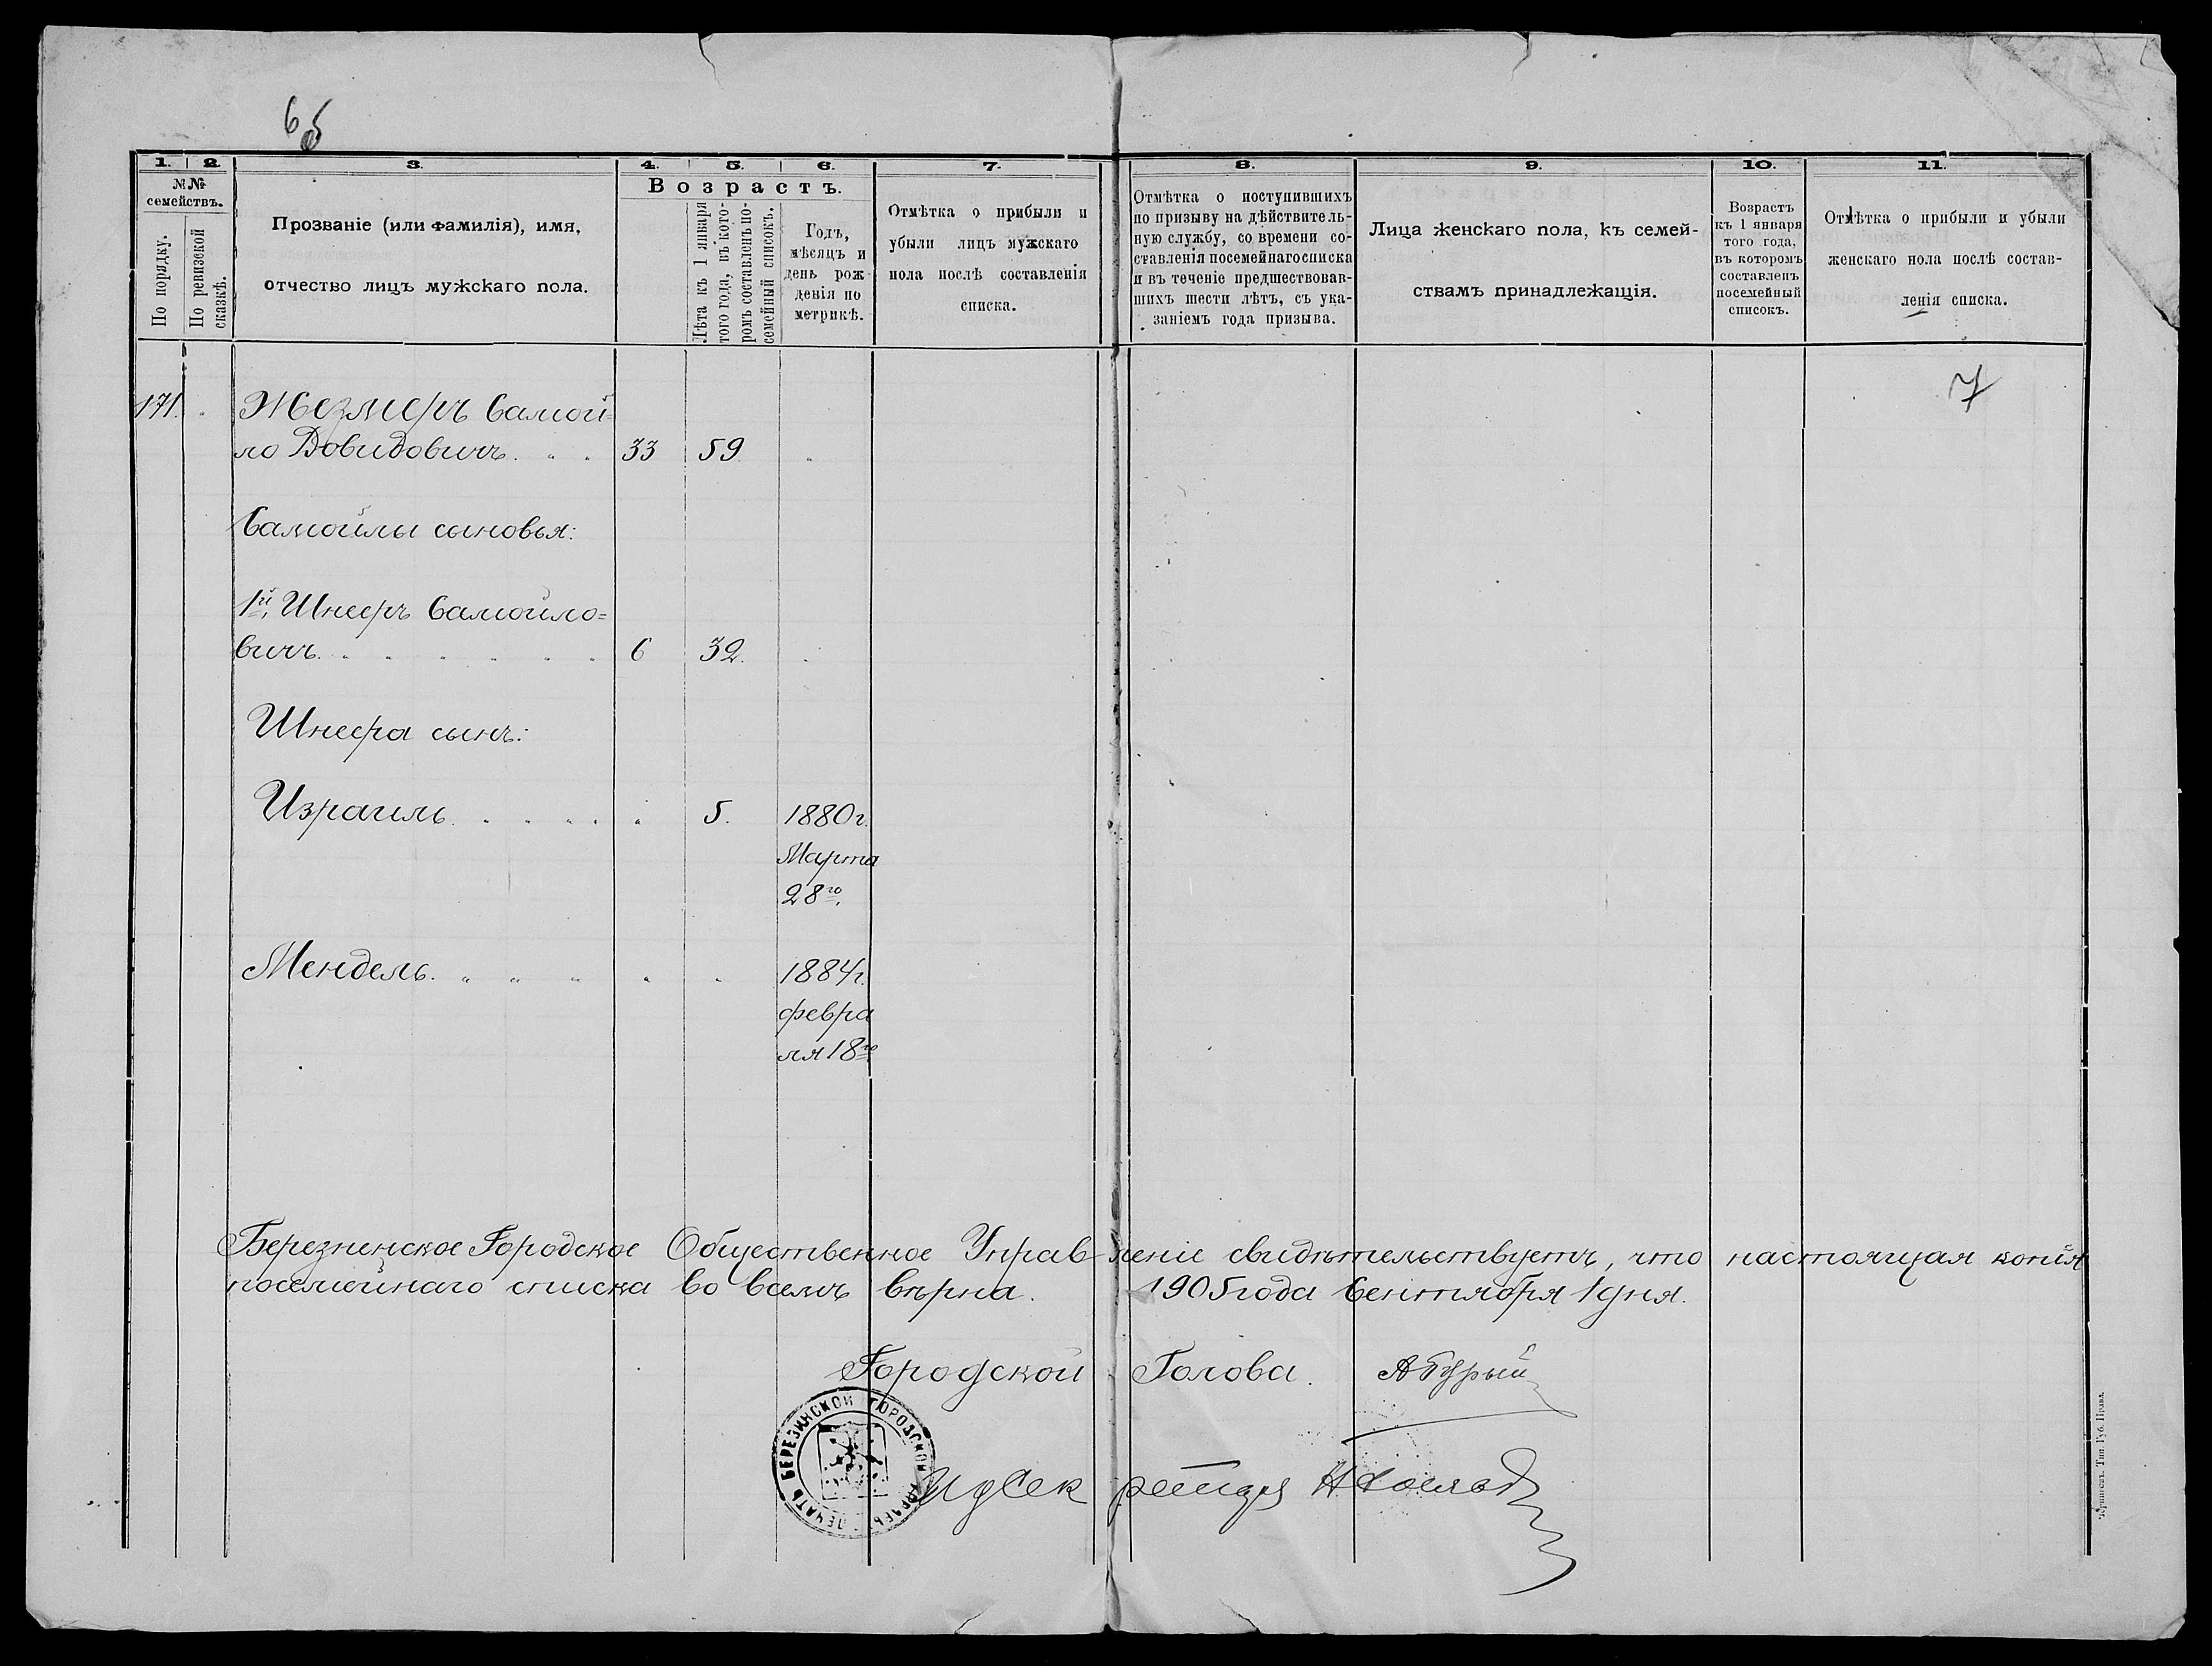 6об
1. 2. 3. 4. 5. 6. 7. 8. 9. 10. 11.
№№ семействъ.
По порядку.
По ревизской сказкѣ.
Прозваніе (или фамилія), имя,
отчество лицъ мужскаго пола.
Возрастъ.
Лѣта къ 1 января
того года, въ кото-
ромъ составленъ по-
семейный списокъ.
Годъ,
мѣсяцъ и
день рож
денія по
метрикѣ.
Отмѣтка о прибыли и
убыли лицъ мужскаго
пола послѣ составленія
списка.
Отмѣтка о поступившихъ
по призыву на дѣйствитель-
ную службу, со времени со-
ставленія посемейнаго списка
и въ теченіе предшествовав-
шихъ шести лѣтъ, съ ука-
заніемъ года призыва.
Лица женскаго пола, къ семей-
ствамъ принадлежащія.
Возрастъ
къ 1 января
того года,
въ которомъ
составленъ
посемейный
списокъ.
Отмѣтка о прибыли и убыли
женскаго пола послѣ состав-
ленія списка.
7
171. Жезмеръ Самой-
ло Довидовичъ. 33 59
Самойлы сыновья:
1й, Шнееръ Самойло=
вичъ. 6 32.
Шнеера сынъ:
Израиль. 5. 1880 г.
Марта
28го.
Мендель. 1884 г.
февра
ля 18го
Березненское Городское Общественное Управленіе свидѣтельствуетъ, что настоящая копія
посемейнаго списка во всемъ вѣрна. 1905 года Сентября 1 дня.
Городской Голова. А Бурый
ПЕЧАТЬ БЕРЕЗИНСКОЙ ГОРОДСКОЙ
И д Секретаря
Тип. Губ. Правл.